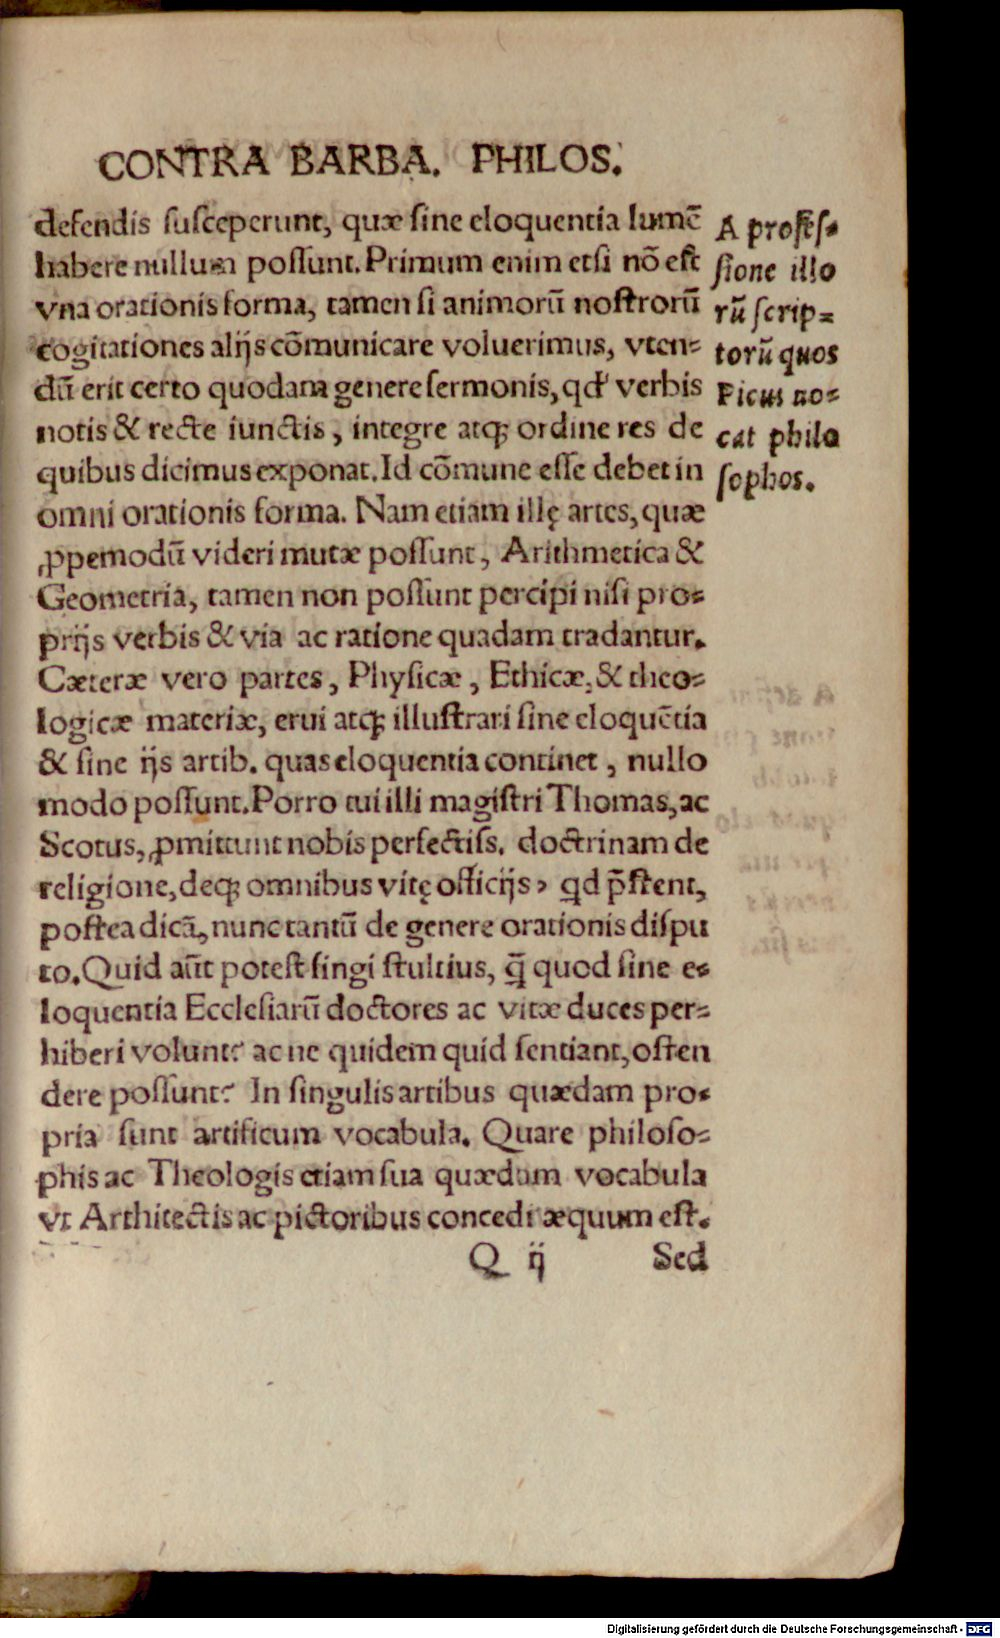 CONTRA BARBA. PHILOS.
defendis ſuſceperunt, quæ ſine eloquentia lumē
habere nullum poſſunt. Primum enim etſi nō eſt
vna orationis forma, tamen ſi animorū noſtrorū
cogitationes alijs cōmunicare voluerimus, vten⸗
dū erit certo quodam genere ſermonis, qđ verbis
notis & recte iunctis, integre atq; ordine res de
quibus dicimus exponat. Id cōmune eſſe debet in
omni orationis forma. Nam etiam illę artes, quæ
ꝓpemodū videri mutæ poſſunt, Arithmetica &
Geometria, tamen non poſſunt percipi niſi pro⸗
prijs verbis & via ac ratione quadam tradantur.
Cæteræ vero partes, Phyſicæ, Ethicæ, & theo⸗
logicæ materiæ, erui atq; illuſtrari ſine eloquētia
& ſine ijs artib. quas eloquentia continet, nullo
modo poſſunt. Porro tui illi magiſtri Thomas, ac
Scotus, ꝓmittunt nobis perfectiſſ. doctrinam de
religione, deq; omnibus vitę officijs, qd p̄ſtent,
poſtea dicā, nunc tantū de genere orationis diſpu
to. Quid aūt poteſt fingi ſtultius, q̄ quod ſine e⸗
loquentia Eccleſiarū doctores ac vitæ duces per⸗
hiberi volunt? ac ne quidem quid ſentiant, oſten
dere poſſunt? In ſingulis artibus quædam pro⸗
pria ſunt artificum vocabula. Quare philoſo⸗
phis ac Theologis etiam ſua quædam vocabula
vt Architectis ac pictoribus concedi æquum eſt.
Q ij Sed
A profeſ⸗
ſione illo
rū ſcrip⸗
torū quos
Picus vo⸗
cat philo
ſophos.
Digitalisierung gefördert durch die Deutsche Forschungsgemeinschaft - DFG